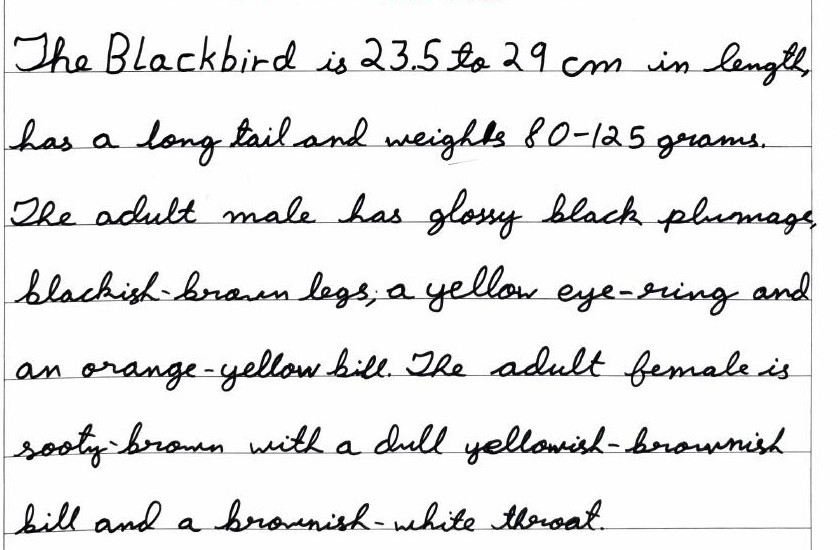 The Blackbird is 23.5 to 29 cm in length,
has a long tail and weights 80-125 grams.
The adult male has glossy black plumage,
blackish-brown legs, a yellow eye-ring and
an orange-yellow bill. The adult female is
sooty-brown with a dull yellowish-brownish
bill and a brownish-white throat.